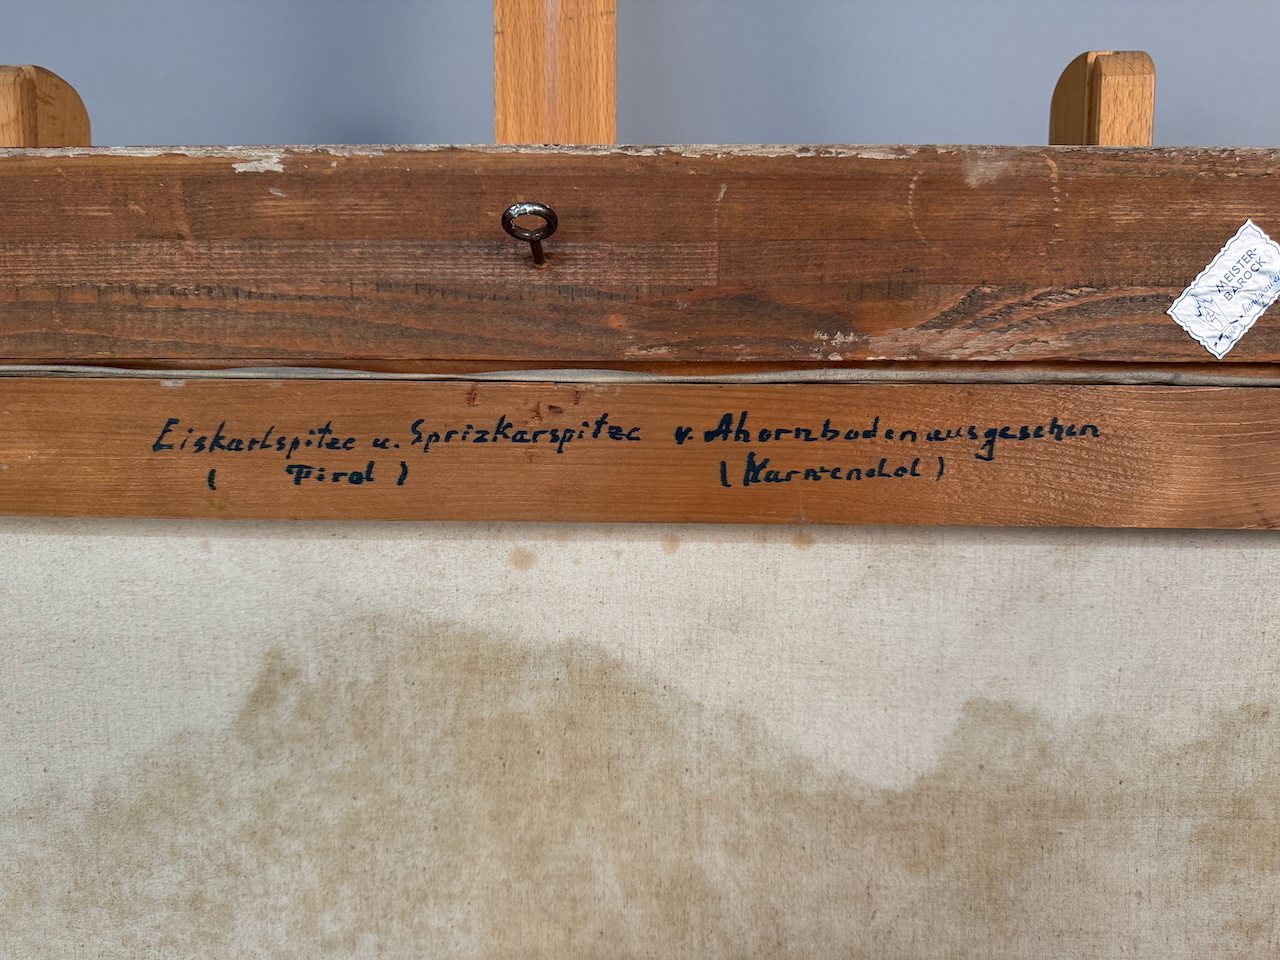 MEISTER-
BAROCK
Eiskarlspitze u. Sprizkarspitze v. Ahornboden ausgesehen
( Tirol ) (Karwendel)